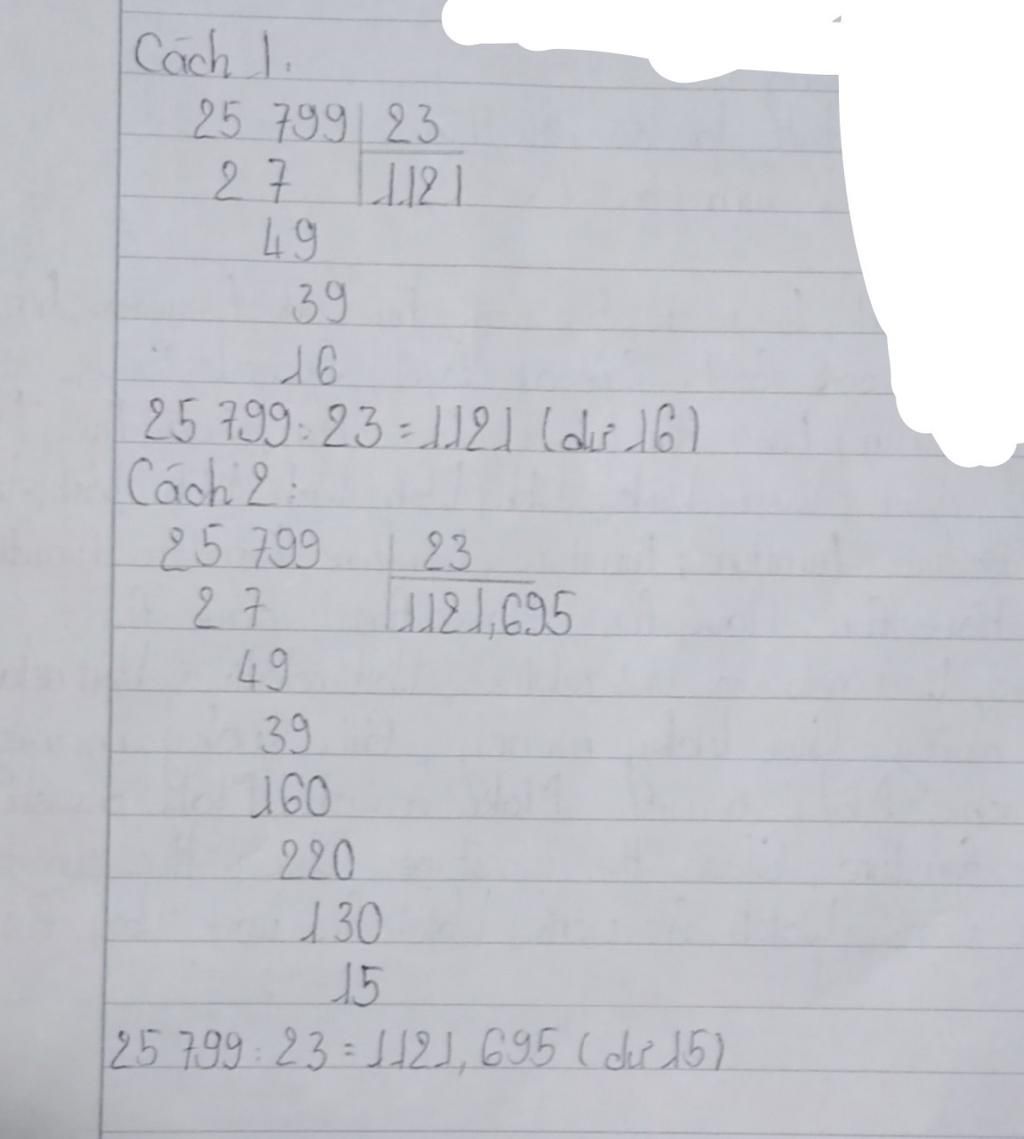 Cách 1:
25 799 23
27 1121
49
39
16
25 799 : 23 = 1121 (dư 16)
Cách 2:
25 799 23
27 1121,695
49
39
160
220
130
15
25 799 : 23 = 1121,695 (dư 15)